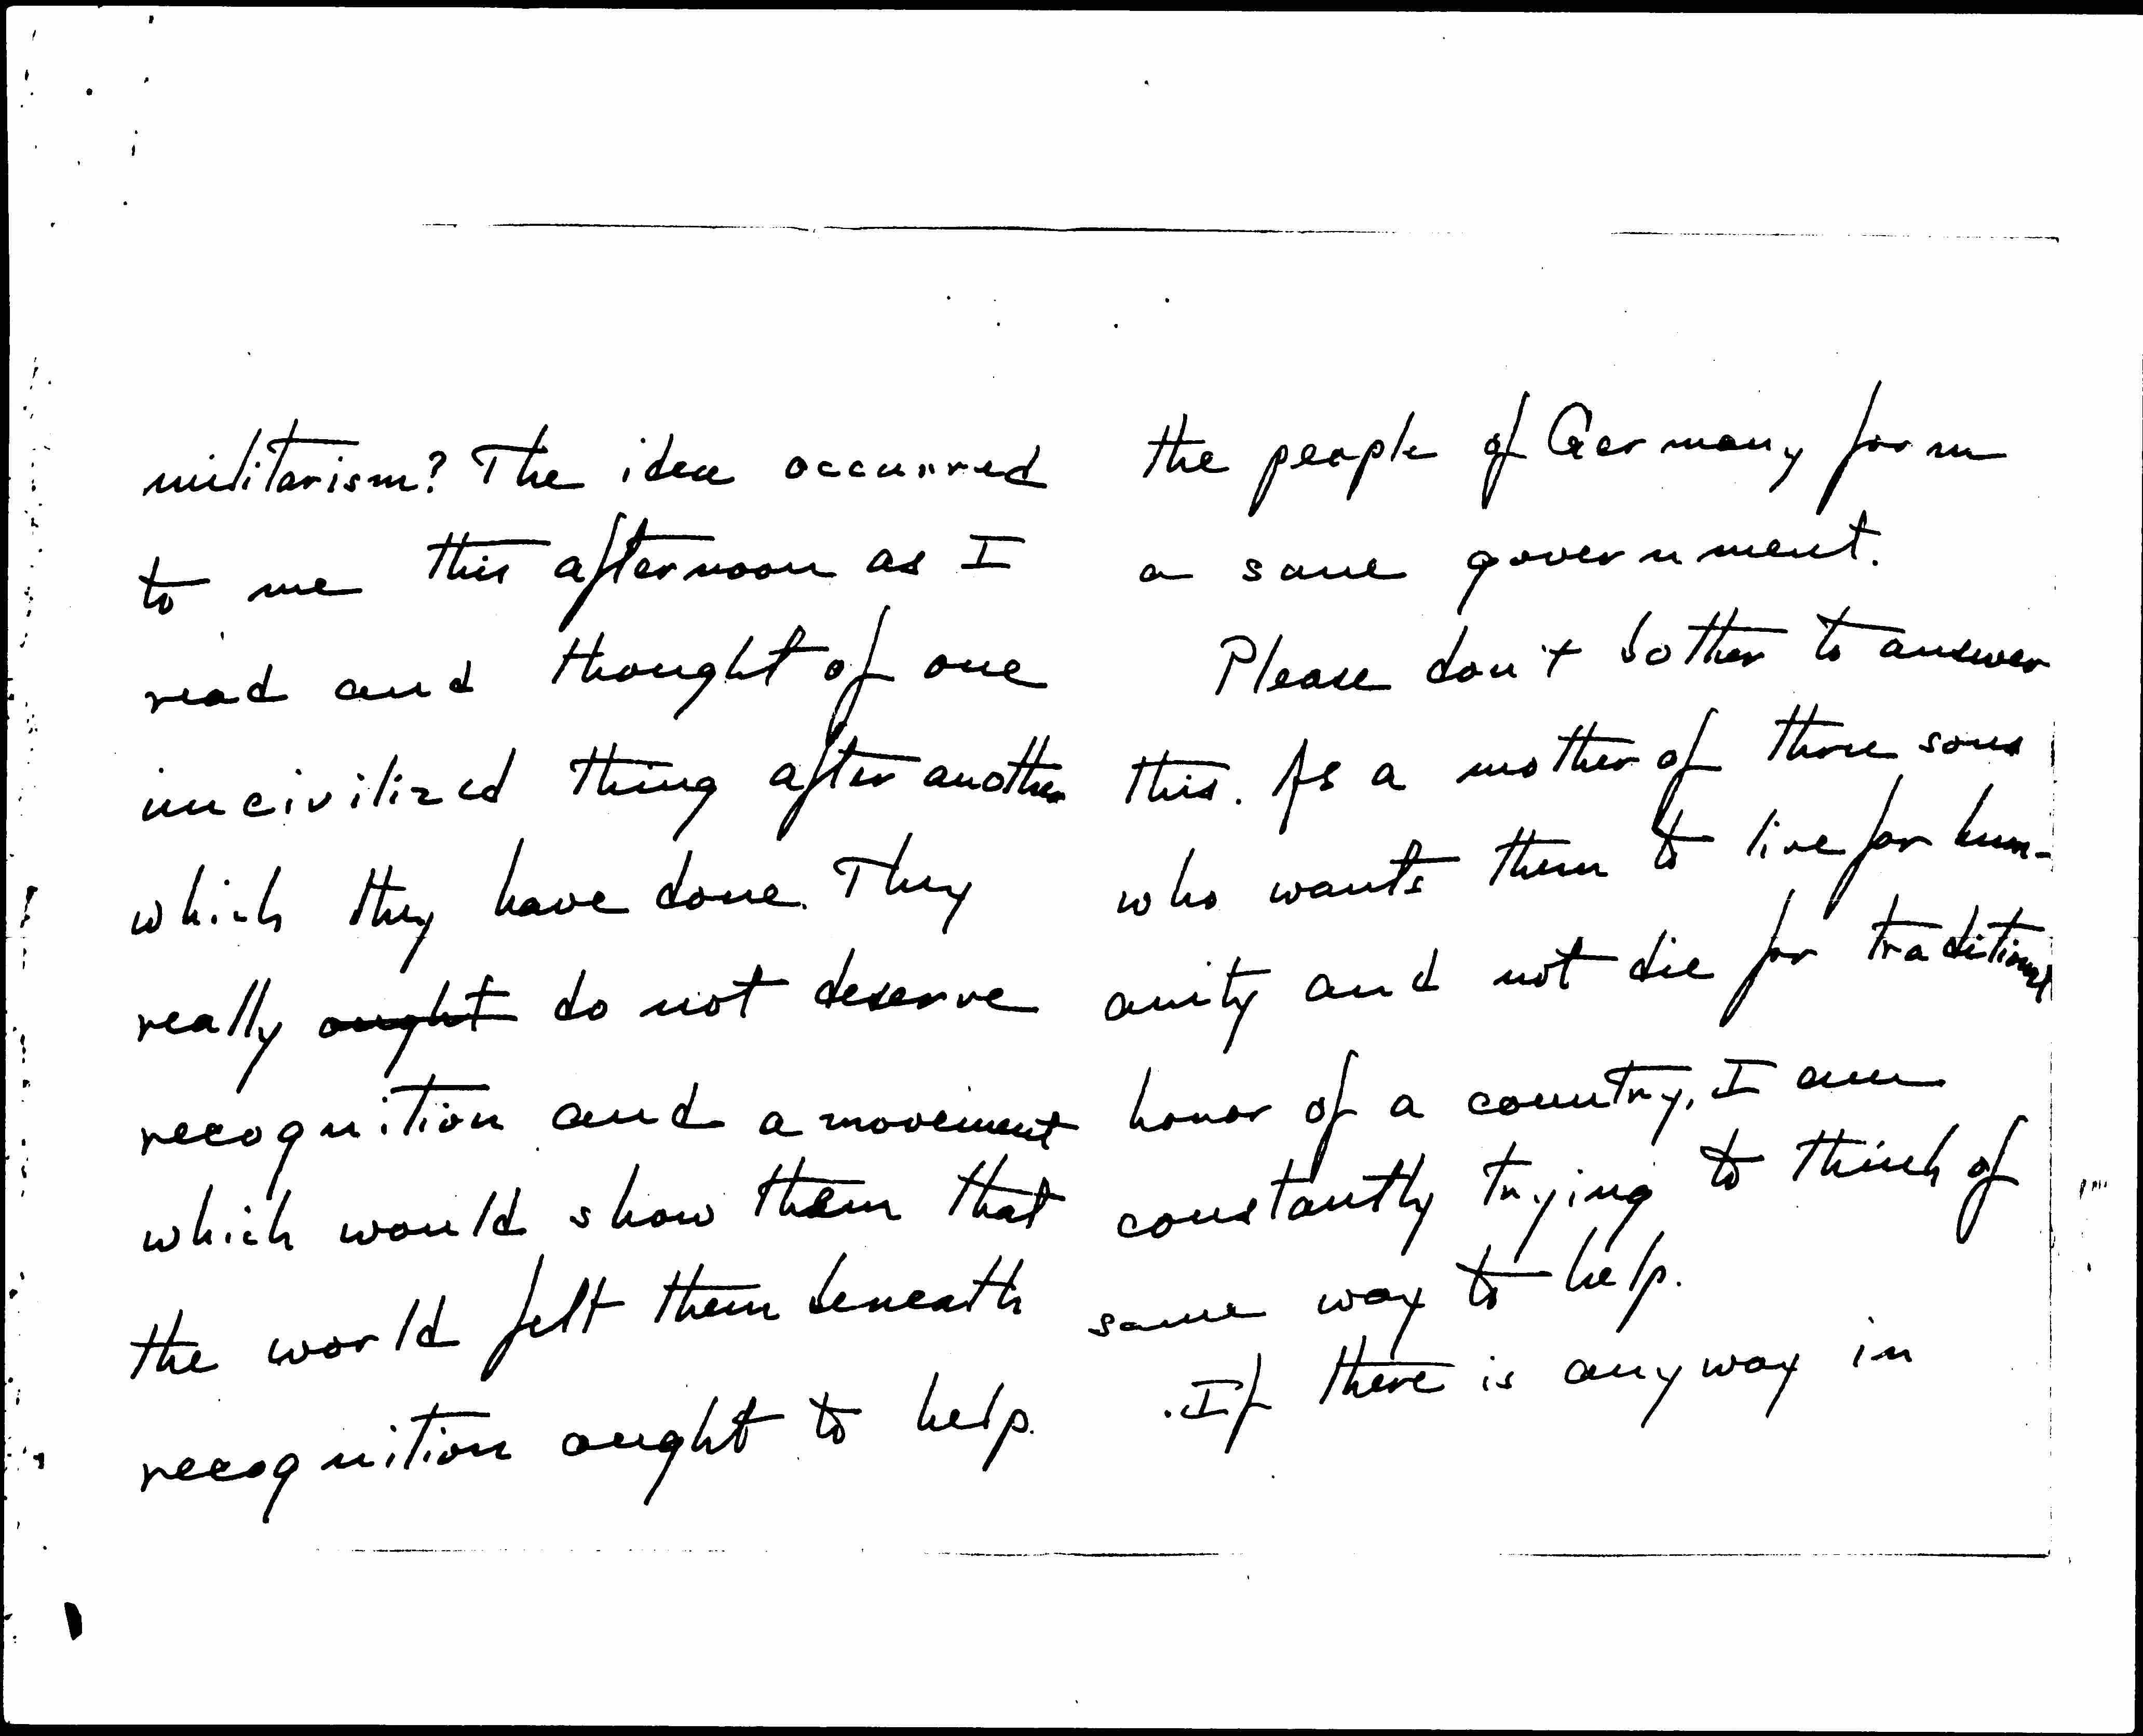 militarism? The idea occurred
to me this afternoon as I
read and thought of one
uncivilized thing after another
which they have done. They
really ought do not deserve
recognition and a movement
which would show them that
the world felt them beneath
recognition ought to help.
the people of Germany form
a sane government.
Please don't bother to answer
this. As a mother of three sons
who wants them to live for hum-
anity and not die for traditional
honor of a country, I am
constantly trying to think of
some way to help.
If there is any way in